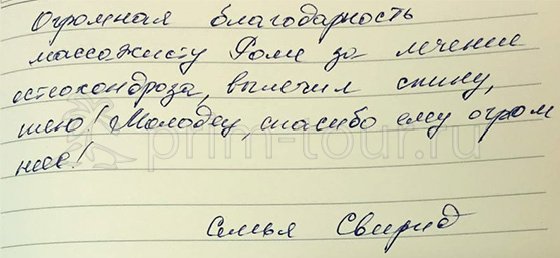 Огромная благодарность
массажисту Роме за лечение
остеохондроза, вылечил спину,
шею! Молодец, спасибо ему огром
ное!
prim-tour.ru
Семья Свирид